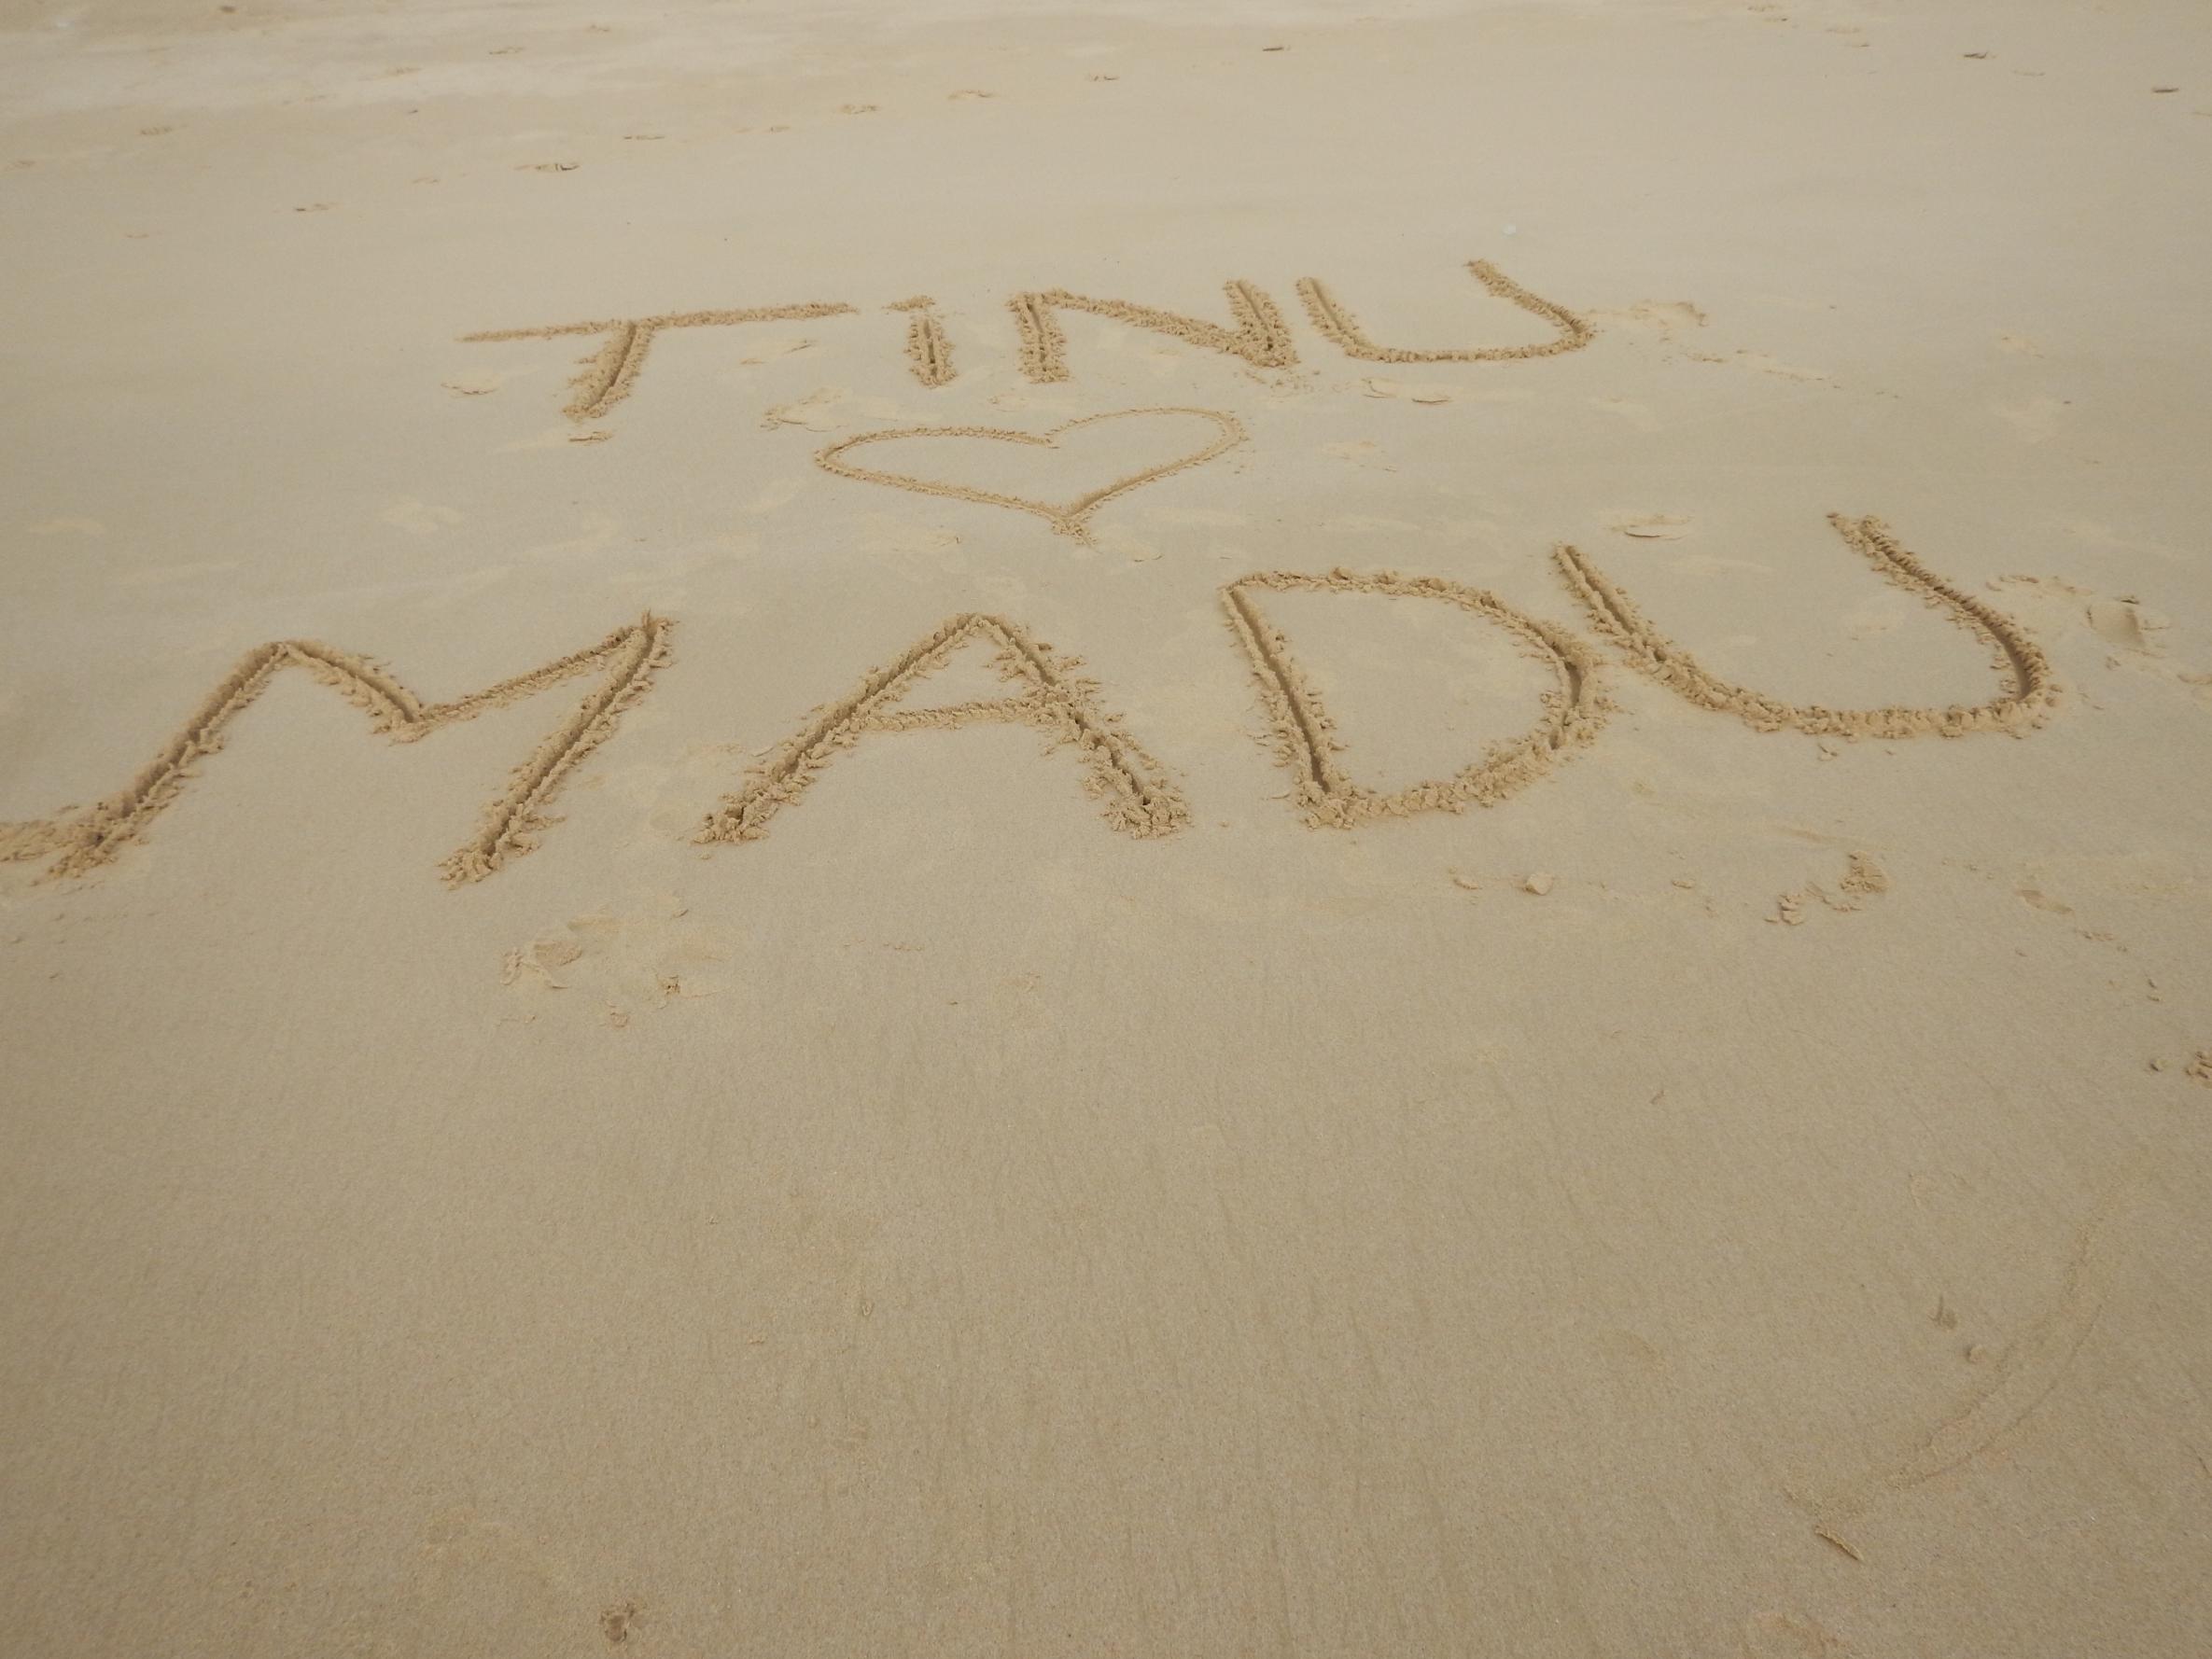 TINU
♡
MADU